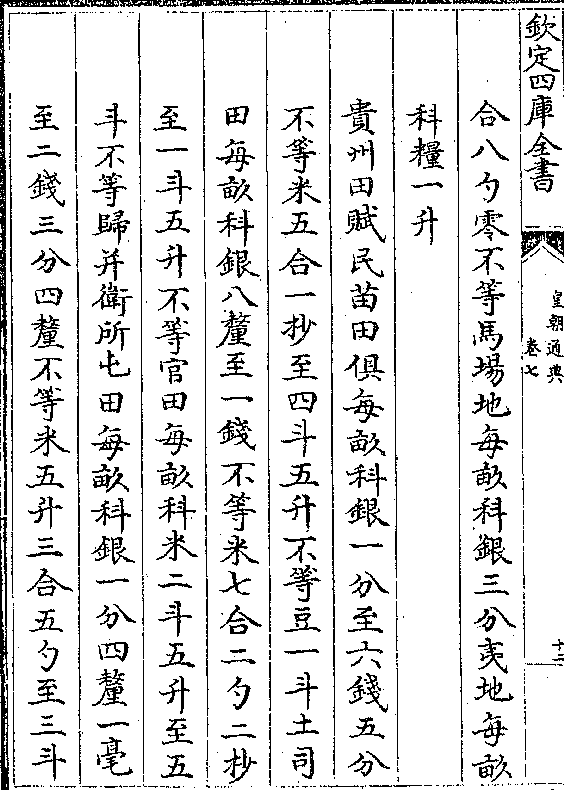 欽定四庫全書
皇朝通典
卷七
十二
合八勺零不等馬場地每畝科銀三分夷地每畝
科糧一升
貴州田賦民苗田俱每畝科銀一分至六錢五分
不等米五合一抄至四斗五升不等豆一斗土司
田每畝科銀八釐至一錢不等米七合二勺二抄
至一斗五升不等官田每畝科米二斗五升至五
斗不等歸并衛所屯田每畝科銀一分四釐一毫
至二錢三分四釐不等米五升三合五勺至三斗